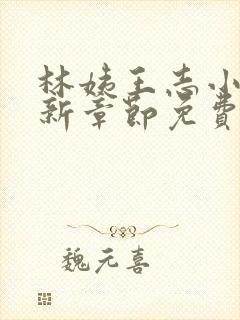 林姨王志小
新章節免費
魏元喜